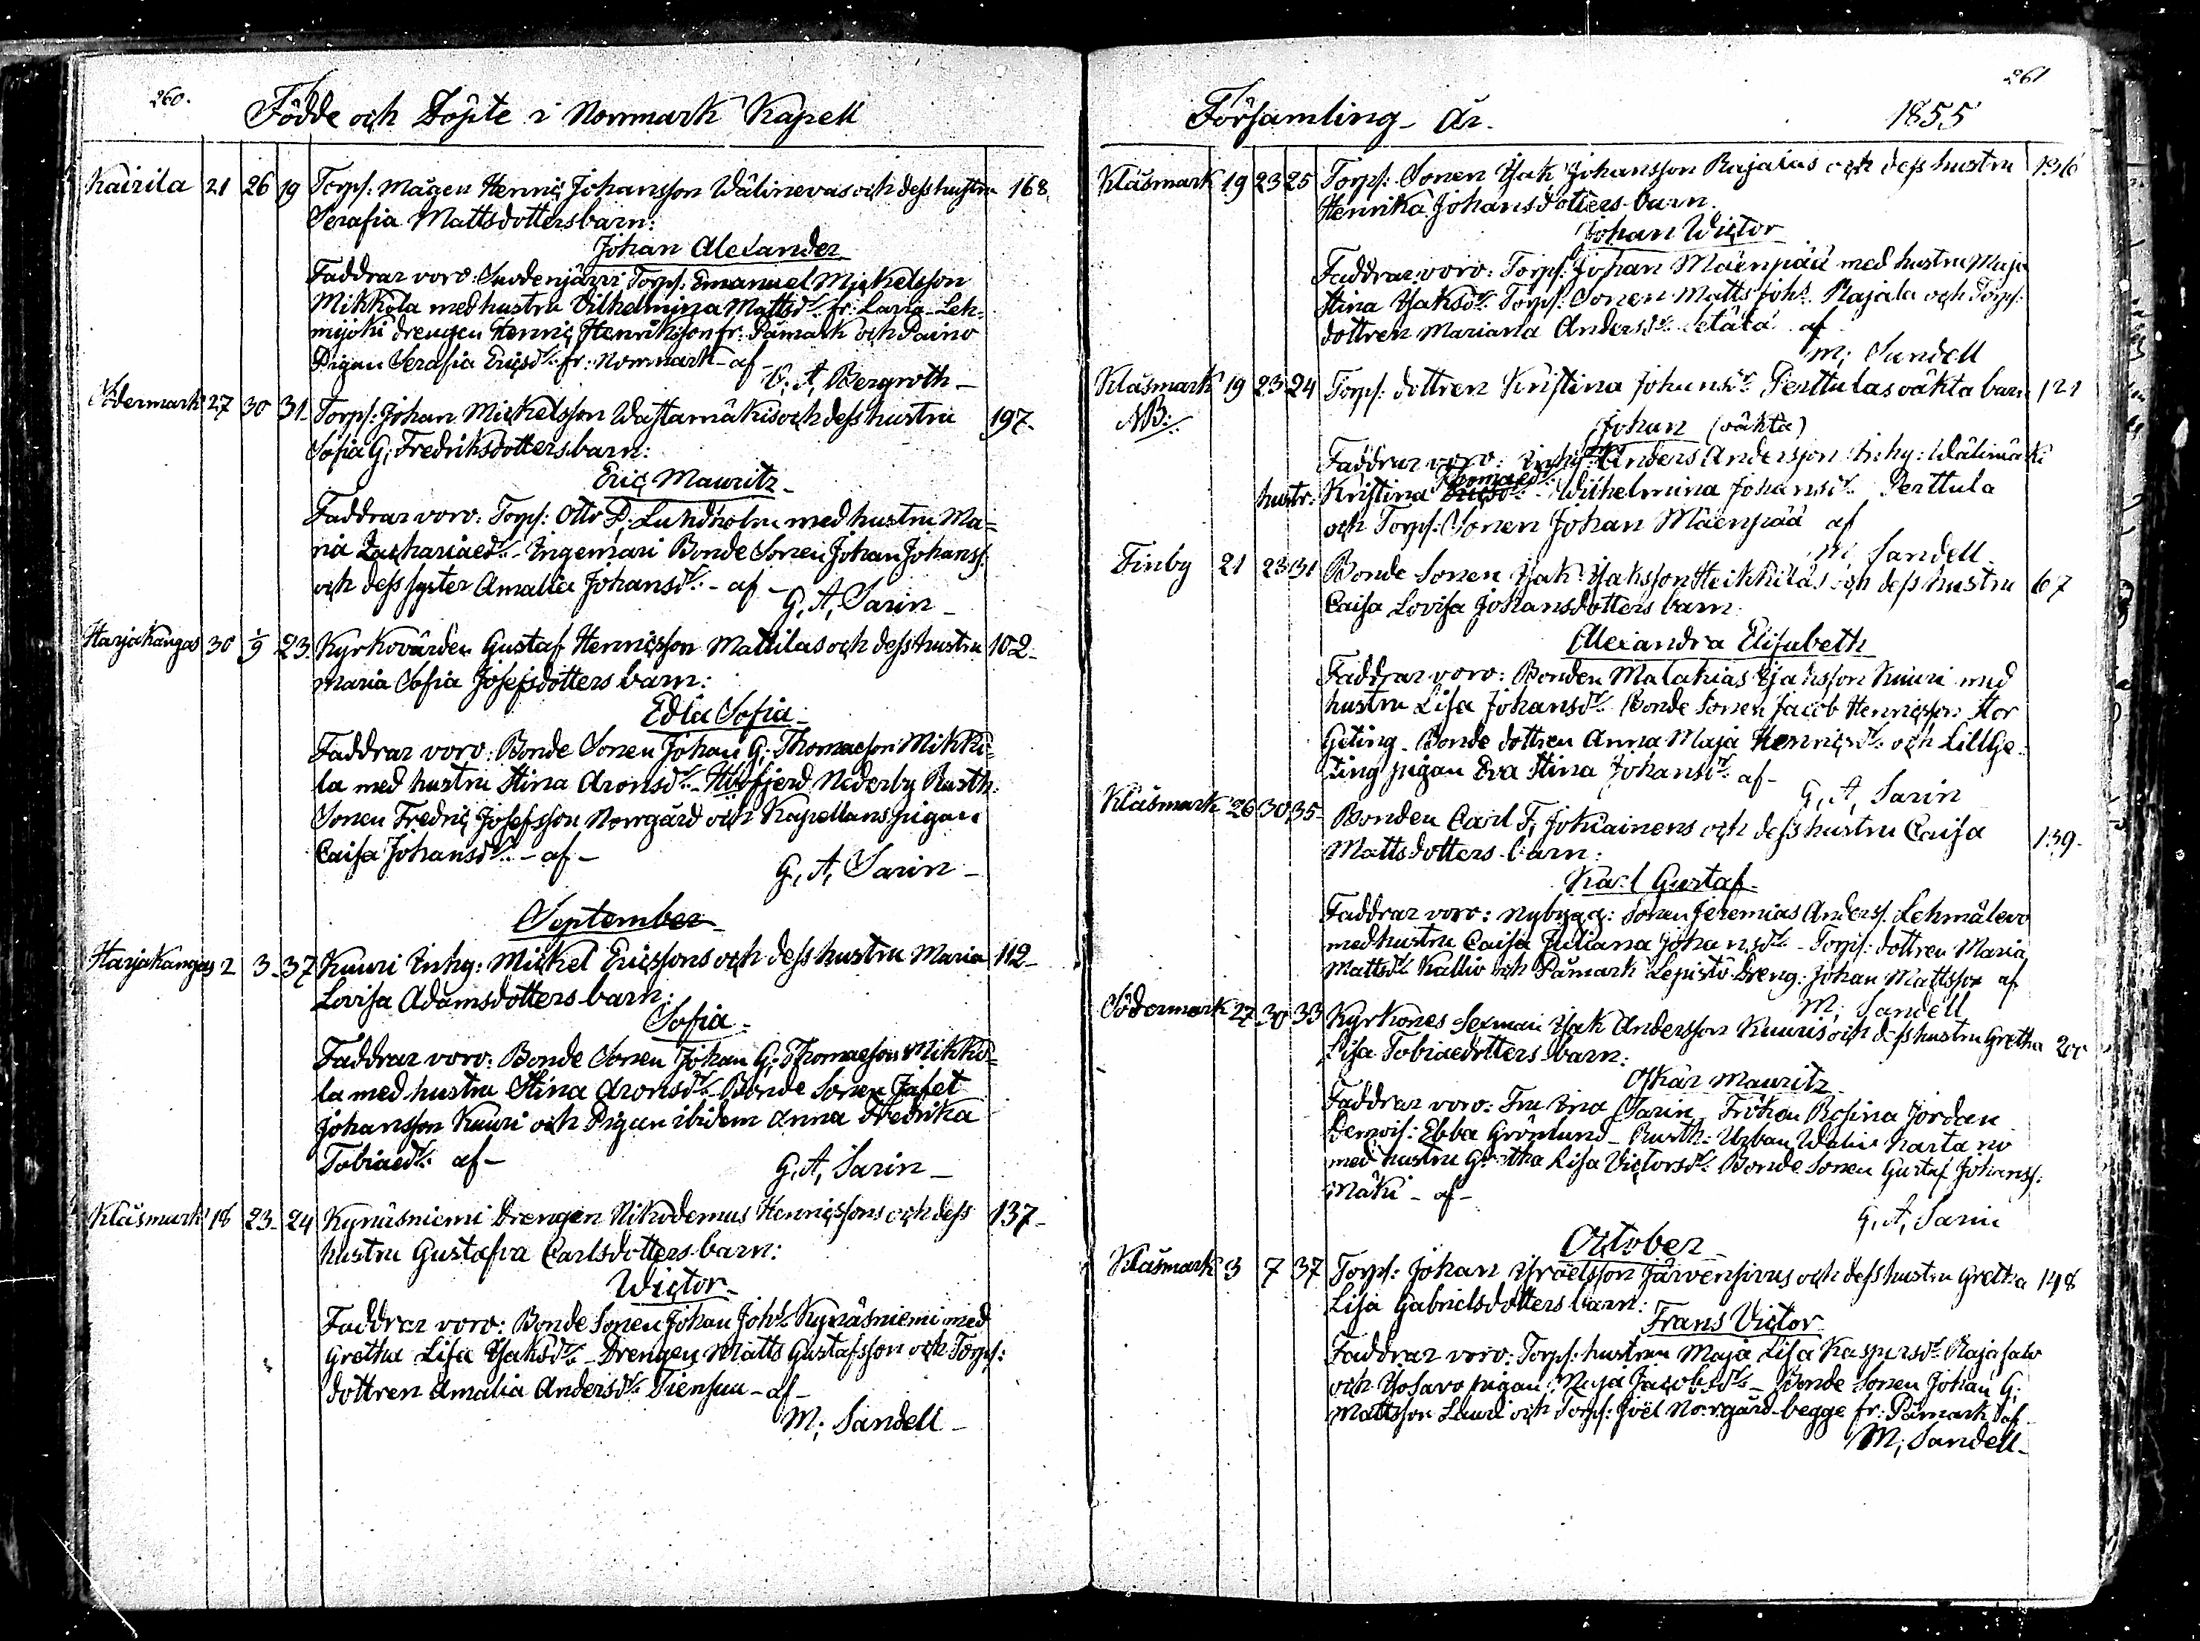 260.
Födde och Döpte i Norrmark Kapell
Kairila 21 26 19 Torps: Mågen Henric Johansson Wälinevas och dess hustru 168
Serafia Mattsdotters barn:
Johan Alexander
Faddrar voro: Suodenjärvi Torps: Emanuel Mickelsson
Mikkola med hustru Vilhelmina Mattsdr. fr: Lavia Leh-
mijoki drengen Henric Henriksson fr: Påmark och Paino
Pigan Serafia Ericsdr. fr: Norrmark - af -
C. A, Bergroth -
Södermark 27 30 31 Torps: Johan Mickelsson Wastamäkis och dess hustru 197.
Sofia G; Fredriksdotters barn:
Eric Mauritz -
Faddrar voro: Torps: Otto F; Lundholm med hustru Ma=
ria Zachariaedr. - Ingemari Bonde Sonen Johan Johanss:
och dess syster Amalia Johansdr. - af -
G, A, Sarin -
Harjakangas 30 1/9 23. Kyrkovärden Gustaf Henricsson Mattilas och dess hustru 102 -
Maria Sofia Josefsdotters barn:
Edla Sofia -
Faddrar voro: Bonde Sonen Johan G; Thomaeson Mikko=
la med hustru Stina Aronsdr. - Hvifjerd Nederby Rusth:
Sonen Fredric Josefsson Norrgård och Kapellans pigan
Caisa Johansdr. - af -
G, A, Sarin -
September
Harjakangas 2 3 - 37 Kuuri Inhy: Mickel Ericssons och dess hustru Maria 112 -
Lovisa Adamsdotters barn:
Sofia -
Faddrar voro: Bonde Sonen Johan G; Thomaeson Mikko=
la med hustru Stina Aronsdr. - Bonde Sonen Jafet
Johansson Kuuri och Pigan ibidem Anna Fredrika
Tobiaedr. af -
G, A, Sarin -
Kläsmark 18 23 - 24 Kynäsniemi Drengen Nikodemus Henricssons och dess 137 -
hustru Gustafva Carlsdotters barn:
Wictor -
Faddrar voro: Bonde Sonen Johan Johs. Kynäsniemi med
Gretha Lisa Isaksdr. - Drengen Matts Gustafsson och Torps:
dottren Amalia Andersdr. Tiensuu - af -
M; Sandell -
261
Församling År. 1855
Kläsmark 19 23 25 Torps: Sonen Isak Johansson Rajalas och dess hustru 136
Henrika Johansdotters barn.
Johan Wictor
Faddrar voro: Torps: Johan Mäenpää med hustru Maja
Stina Isaksdr. Torps: Sonen Matts Johs. Rajala och Torps:
dottren Mariana Andersdr. Setälä af
M; Sandell
Kläsmark 19 23 24 Torps: dottren Kristina Johansdr. Perttulas oäkta barn 121
NB:
Johan (oäkta)
Faddrar voro: Anders Andersson Inhy: Wälimäki
hustr: Kristina Thomaedr. Wilhelmina Johansdr. Perttula
och Torps: Sonen Johan Mäenpää af
M; Sandell
Finby 21 23 31 Bonde Sonen Isak Isaksson Heikkiläs och dess hustru 67
Caisa Lovisa Johansdotters barn
Alexandra Elisabeth
Faddrar voro: Bonden Malakias Isaksson Kuuri med
hustru Lisa Johansdr. Bonde Sonen Jacob Henricsson Stor
Geting - Bonde dottren Anna Maja Henricsdr. och LillGe-
ting pigan Eva Stina Johansdr. af -
G, A, Sarin
Kläsmark 26 30 35 - Bonden Carl F; Jokiainens och dess hustru Caisa 139 -
Mattsdotters barn:
Karl Gustaf -
Faddrar voro: Nybygg: Sonen Jeremias Anderss. Lehmälevo
med hustru Caisa Juliana Johansdr. - Torps: dottren Maria
Mattsdr. Kallio och Påmark Lepistö Dreng. Johan Mattsson af
M; Sandell
Södermark 27 30 33 Kyrkones Sexman Isak Andersson Kuuris och dess hustru Gretha 200
Lisa Tobiaedotters barn:
Oskar Mauritz
Faddrar voro: Fru Ina Sarin Fröken Rosina Jordan
Demois: Ebba Grönlund - Rusth: Urban Wälie Kartano
med hustru Gretha Lisa Victorsdr. Bonde Sonen Gustaf Johanss:
Mäki - af -
G, A, Sarin
October -
Kläsmark 3 7 37 Torps: Johan Israelsson Järvensivus och dess hustru Gretha 148
Lisa Gabrielsdotters barn:
Frans Victor
Faddrar voro: Torps: hustrun Maja Lisa Kaspersdr. Rajasalo
och Isosavo pigan Maja Jacobsdr. - Bonde Sonen Johan G;
Mattsson Lauri och Torps: Joel Norrgård begge fr: Påmark af
M; Sandell -